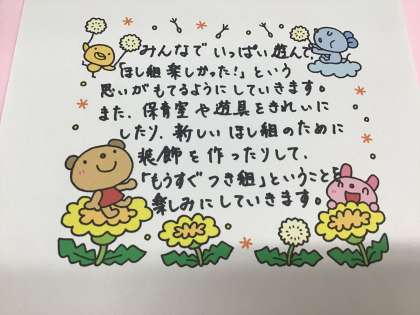 みんなで いっぱい 遊んで
「ほし組 楽しかった!」という
思いが もてるようにしていきます。
また、保育室や遊具をきれいに
したり、新しい ほし組のために
装飾を作ったりして、
「もうすぐ つき組」ということを
楽しみにしていきます。